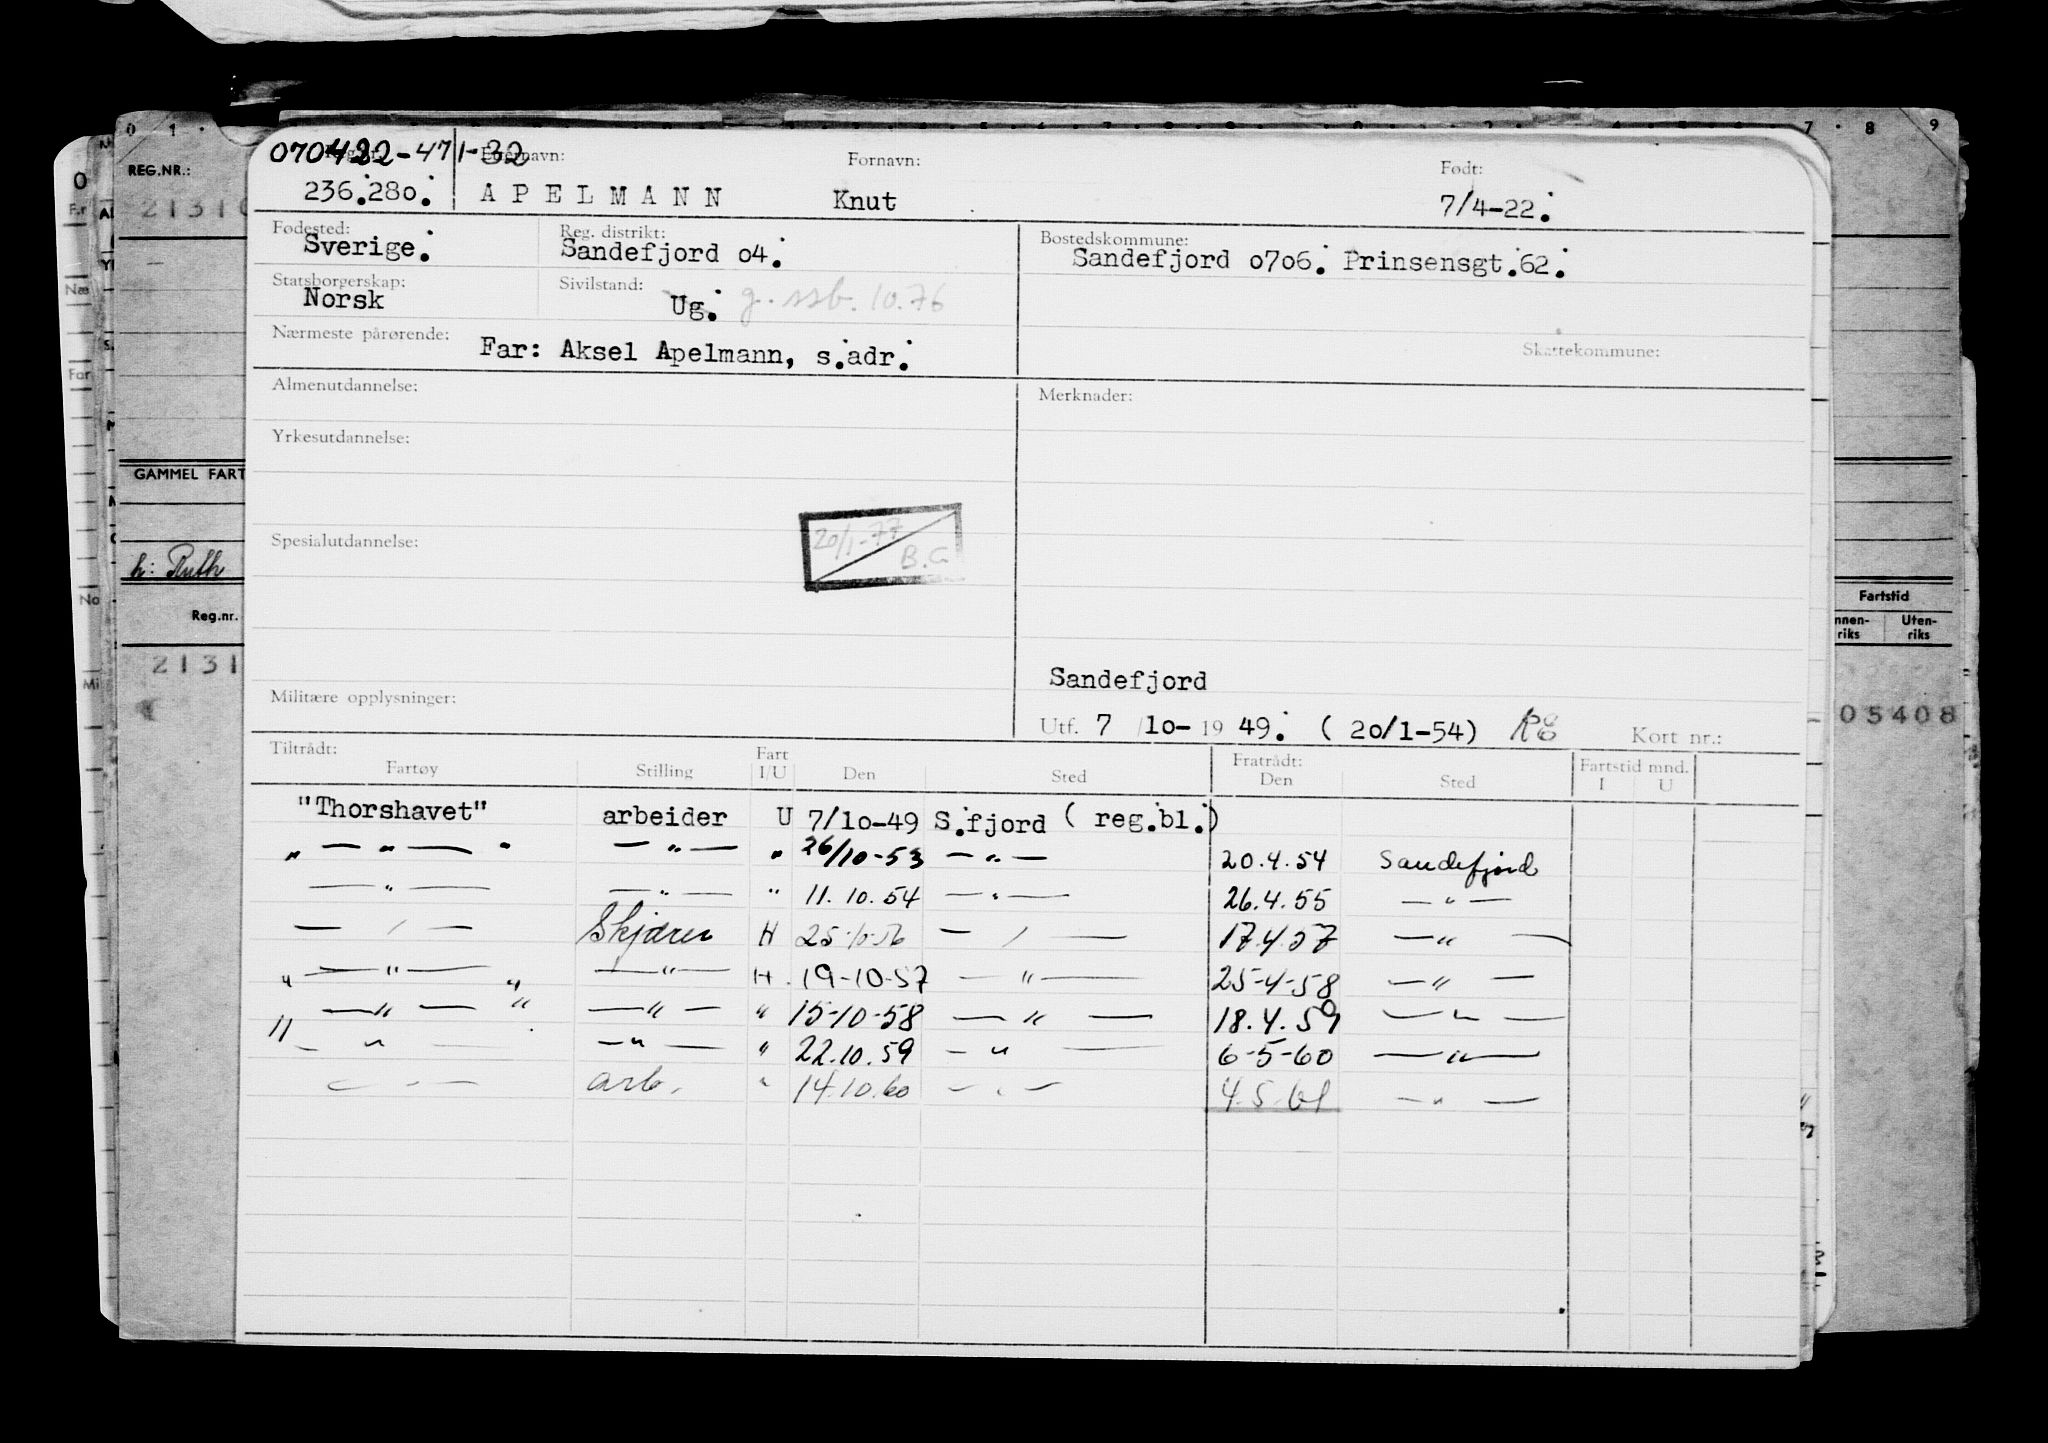 070422-471-32
Etternavn: Fornavn: Født:
236.280. A P E L M A N N Knut 7/4-22.
Fødested: Reg. distrikt: Bostedskommune:
Sverige. Sandefjord 04. Sandefjord 0706. Prinsensgt.62.
Statsborgerskap: Sivilstand:
Norsk Ug. g. ssb. 10.76
Nærmeste pårørende: Far: Aksel Apelmann, s.adr. Skattekommune:
Almenutdannelse: Merknader:
Yrkesutdannelse:
20/1-77
Spesialutdannelse: B.G
Sandefjord
Militære opplysninger:
Utf. 7 /10- 19 49. ( 20/1-54) Kort nr.:
Tiltrådt: Fart Fratrådt: Fartstid mnd.
Fartøy Stilling I/U Den Sted Den Sted I U
"Thorshavet" arbeider U 7/10-49 S.fjord ( reg.bl.)
" — " — " — " — " 26/10-53 — " — 20.4.54 Sandefjord
— " — — " — " 11.10.54 — " — 26.4.55 — " —
— " — Skjærer H 25.10.56 — " — 17.4.57 — " —
" — " — " — " — H. 19-10-57 — " — 25-4-58 — " —
— " — " — " — " 15-10-58 — " — 18.4.59 — " —
" — " — — " — " 22.10.59 — " — 6-5-60 — " —
— " — arb. " 14.10.60 — " — 4.5.61 — " —
REG.NR.:
GAMMEL FART
h: Ruth
Reg.nr.
2131
Fartstid
nnen-
riks
Uten-
riks
05408